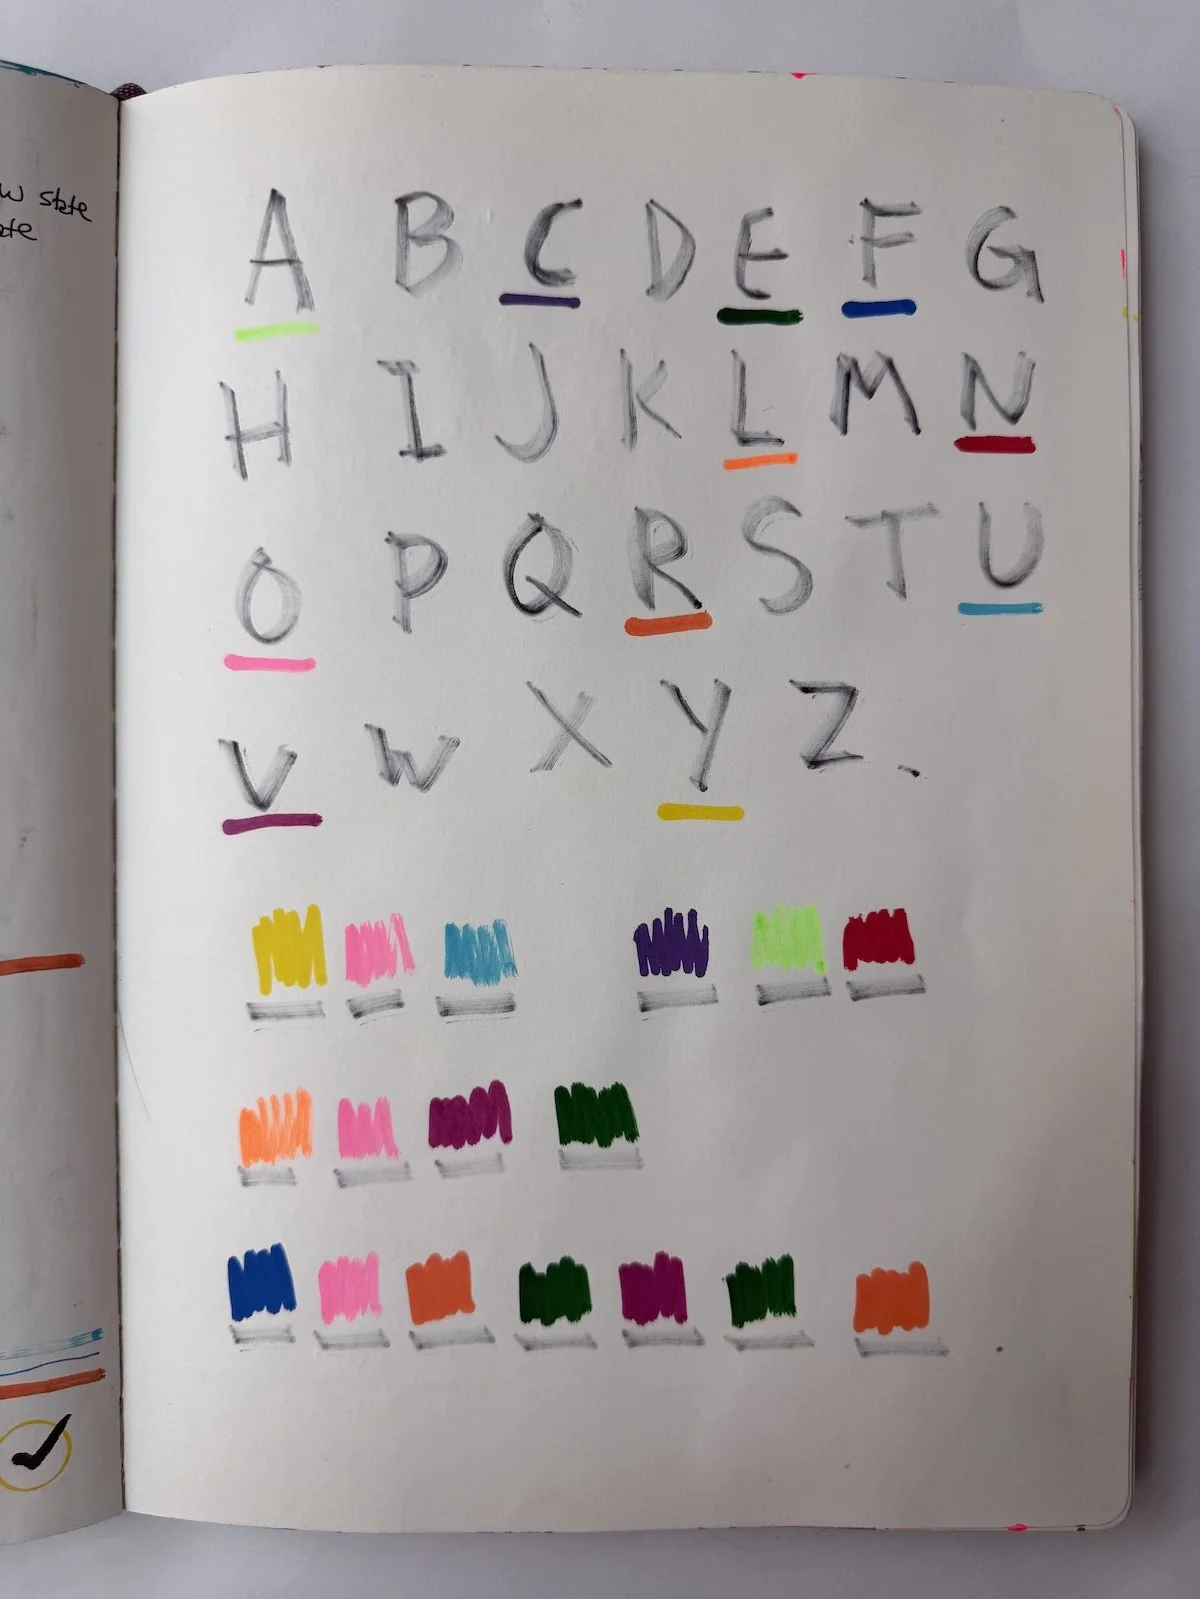 state
A B C D E F G
H I J K L M N
O P Q R S T U
V W X Y Z.